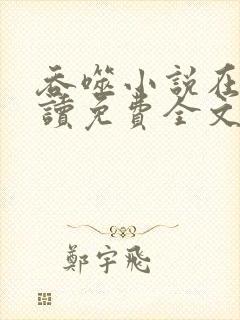 吞噬小説在
讀免費全文
鄭宇飛